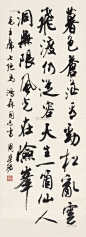 暮色蒼茫看勁松亂雲
飛渡仍從容天生一個仙人
洞無限風光在險峰
毛主席七絕
同志書